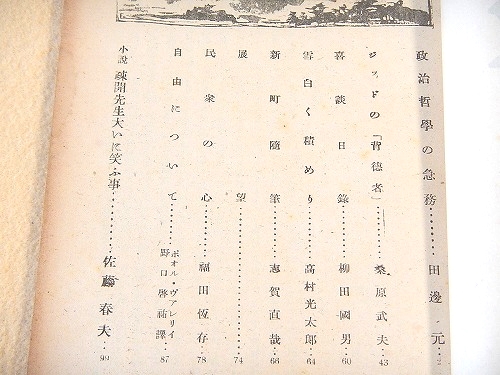 政治哲學の急務………田邊元…2
ジッドの「背德者」………桑原武夫…43
喜談日錄………柳田國男…60
雪白く積めり………高村光太郎…64
新町隨筆………志賀直哉…66
展望………74
民衆の心………福田恆存…78
自由について………ポオル・ヴァレリイ 野口啓祐譯…87
小説 疎開先生大いに笑ふ事………佐藤春夫…99